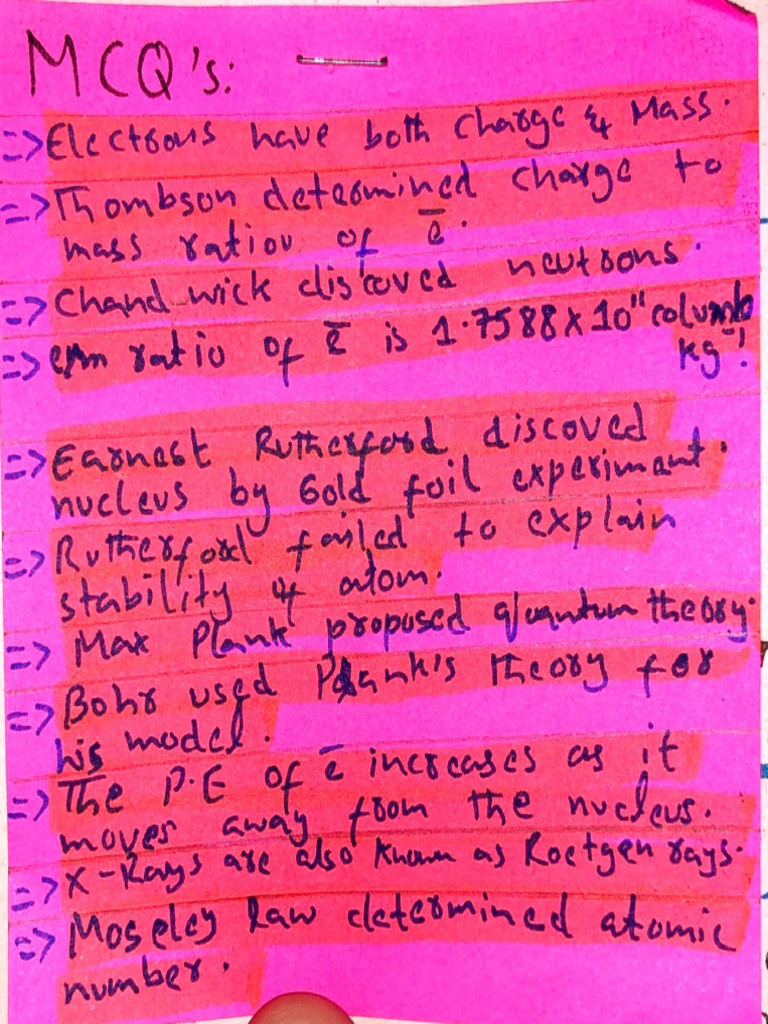 MCQ's:
=> Electrons have both charge & Mass.
=> Thombson determined charge to
mass ratiou of e̅.
=> Chandwick discoved neutrons.
=> e/m ratio of e̅ is 1.7588x10¹¹ columb
kg⁻¹.
=> Earnest Rutherford discoved
nucleus by Gold foil experiment.
=> Rutherford failed to explain
stability of atom.
=> Max Plank proposed quantum theory.
=> Bohr used Plank's theory for
his model.
=> The P.E of e̅ increases as it
moves away from the nucleus.
=> X-Rays are also known as Roetgen rays.
=> Moseley law determined atomic
number.